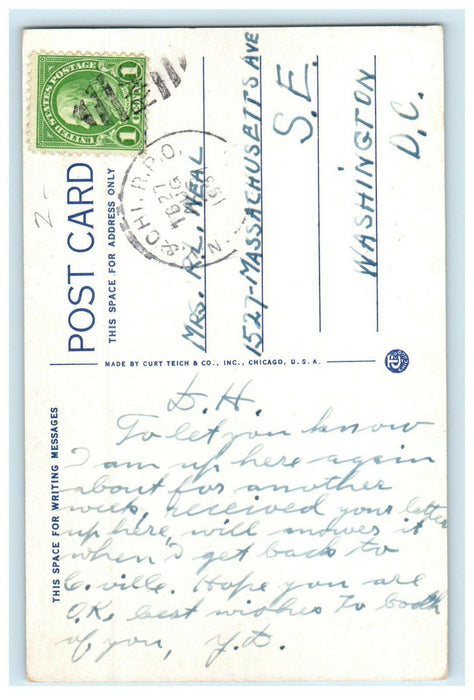 UNITED STATES POSTAGE
1 CENT 1
& CHI. R.P.O.
TR 27
AUG
193
N.
2-
POST CARD
THIS SPACE FOR ADDRESS ONLY
MRS. R.L. NEAL
1527-MASSACHUSETTS AVE
S.E.
WASHINGTON
D.C.
MADE BY CURT TEICH & CO., INC., CHICAGO, U.S.A.
THIS SPACE FOR WRITING MESSAGES
D.H.
To let you know
I am up here again
about for another
week, received your letter
up here, will answer it
when I get back to
C.ville. Hope you are
O.K. best wishes to both
of you, Y.D.